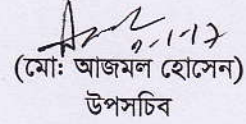 (মোঃ আজমল হোসেন)
উপসচিব